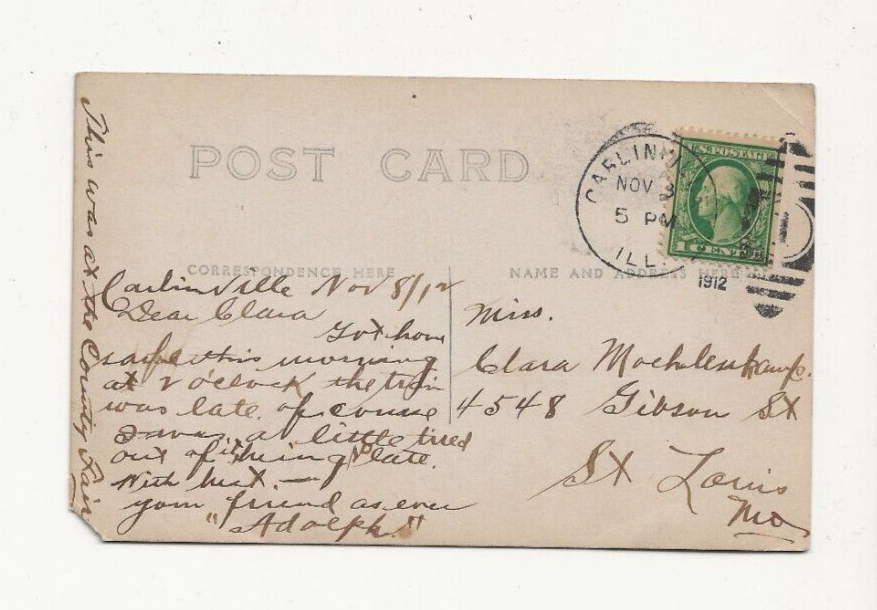 POST CARD
CARLINV
NOV 8
5 PM
ILL.
1912
U.S. POSTAGE
1 CENT
CORRESPONDENCE HERE
NAME AND ADDRESS HERE
This was at the County Fair
Carlinville Nov 8/12
Dear Clara
Got home
safe this morning
at 2 o'clock the train
was late of course
I was a little tired
out of it being late.
With best —
your friend as ever
"Adolph"
Miss.
Clara Moehlenkamp.
4548 Gibson St
St Louis
Mo